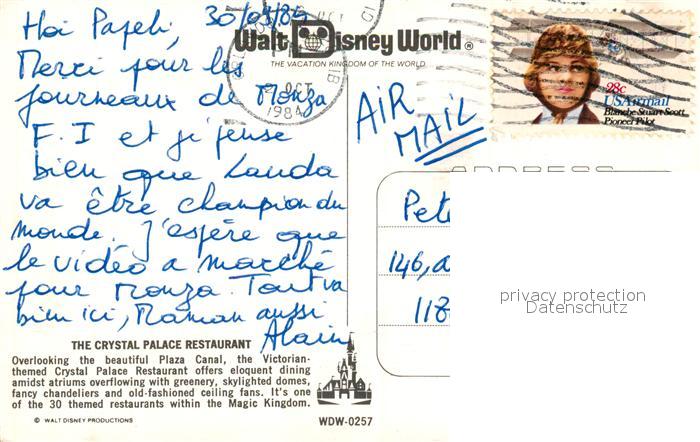 Hoi Papeli, 30/09/84
Merci pour les
journeaux de Monza
F.I et je pense
bien que Lauda
va être champion du
monde. J'espère que
le vidéo a marché
pour Monza. Tout va
bien ici, Maman aussi
Alain
THE CRYSTAL PALACE RESTAURANT
Overlooking the beautiful Plaza Canal, the Victorian-
themed Crystal Palace Restaurant offers eloquent dining
amidst atriums overflowing with greenery, skylighted domes,
fancy chandeliers and old-fashioned ceiling fans. It's one
of the 30 themed restaurants within the Magic Kingdom.
© WALT DISNEY PRODUCTIONS
WDW-0257
Walt Disney World®
THE VACATION KINGDOM OF THE WORLD
2 OCT
1984
28c
USAirmail
Blanche Stuart Scott
Pioneer Pilot
AIR
MAIL
ADDRESS
Pete
146, a
118
privacy protection
Datenschutz